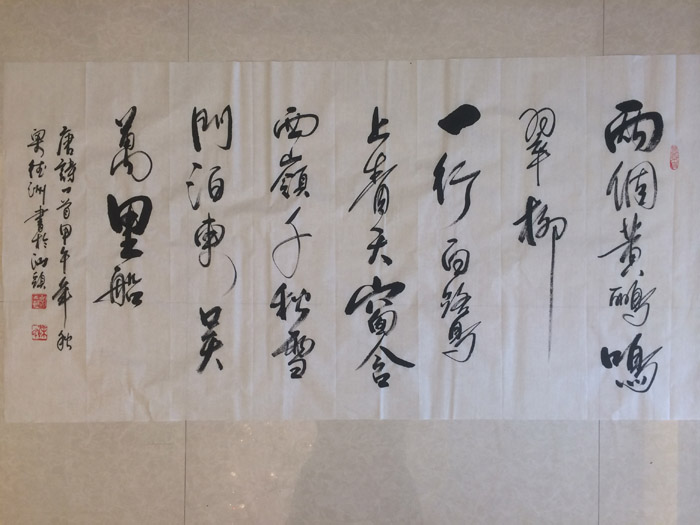 兩個黃鸝鳴
翠柳
一行白鷺
上青天窗含
西嶺千秋雪
門泊東吳
萬里船
唐詩一首甲午年秋
洲書於汕頭